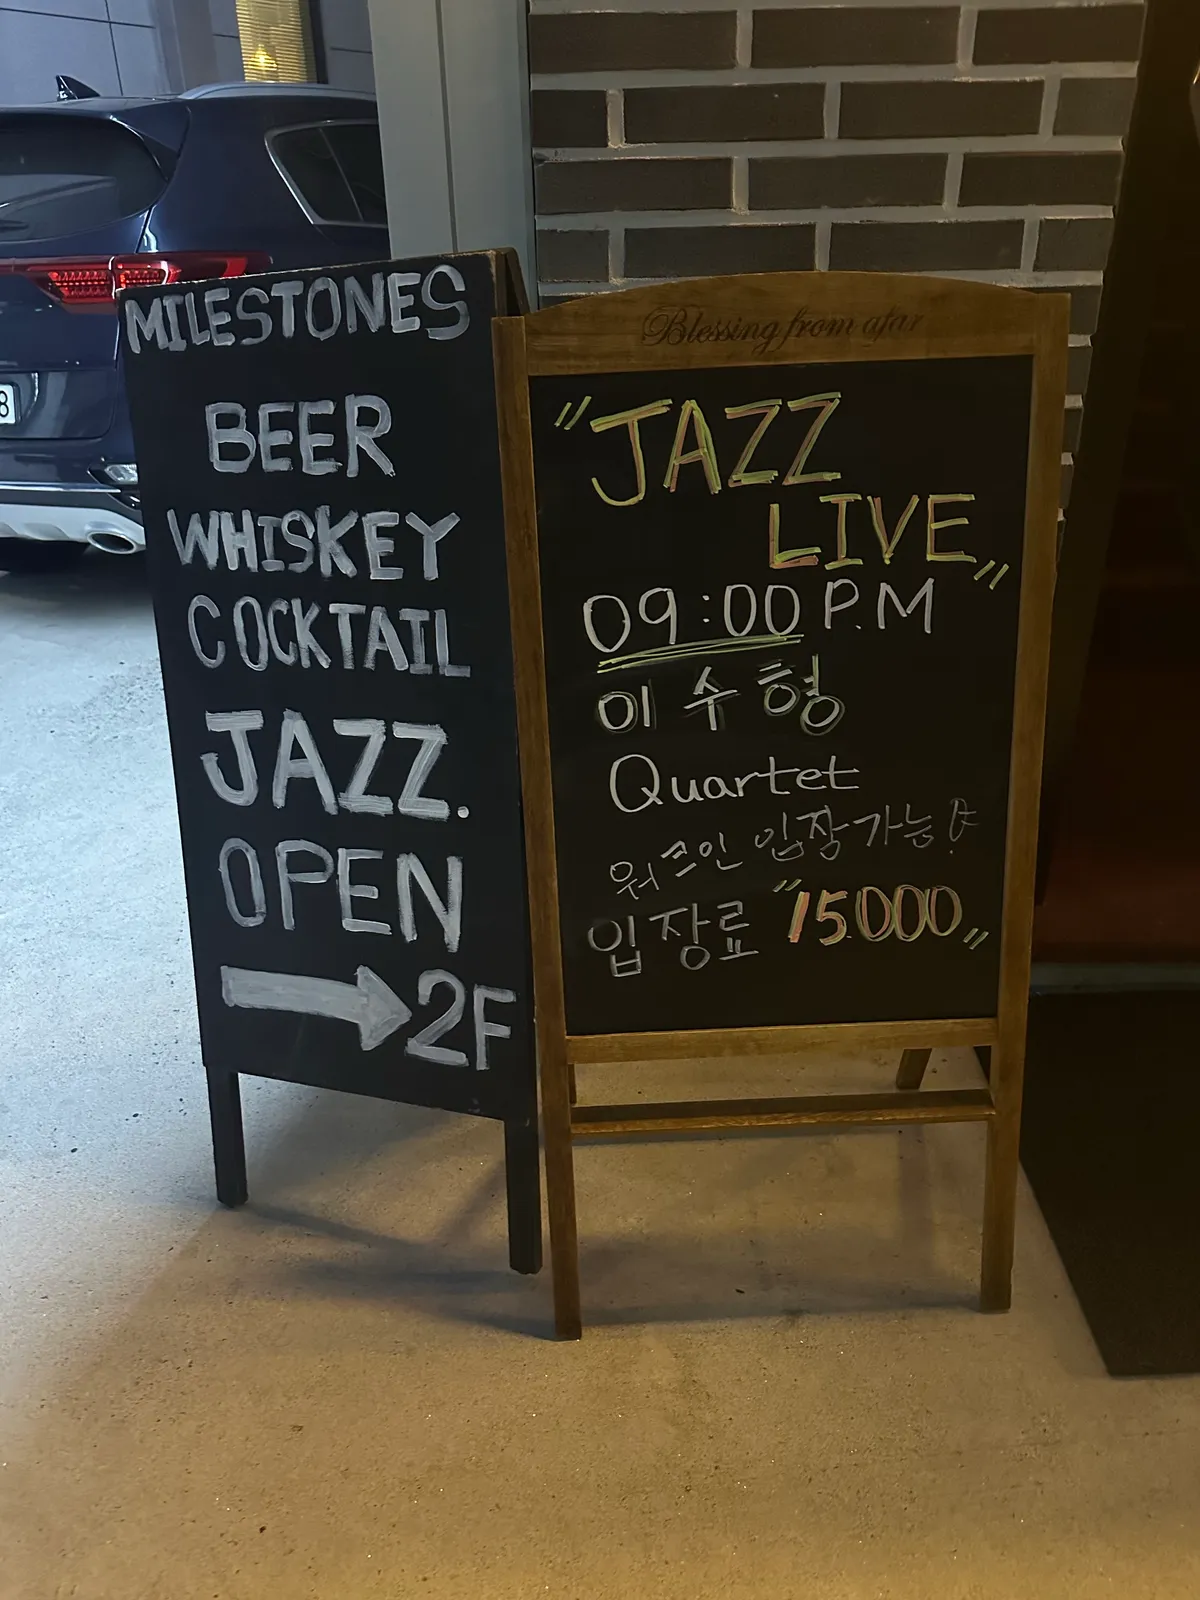 MILESTONES
BEER
WHISKEY
COCKTAIL
JAZZ.
OPEN
→2F
Blessing from afar
"JAZZ
LIVE"
09:00 P.M
이수형
Quartet
워크인 입장가능!
입장료 "15.000"
8